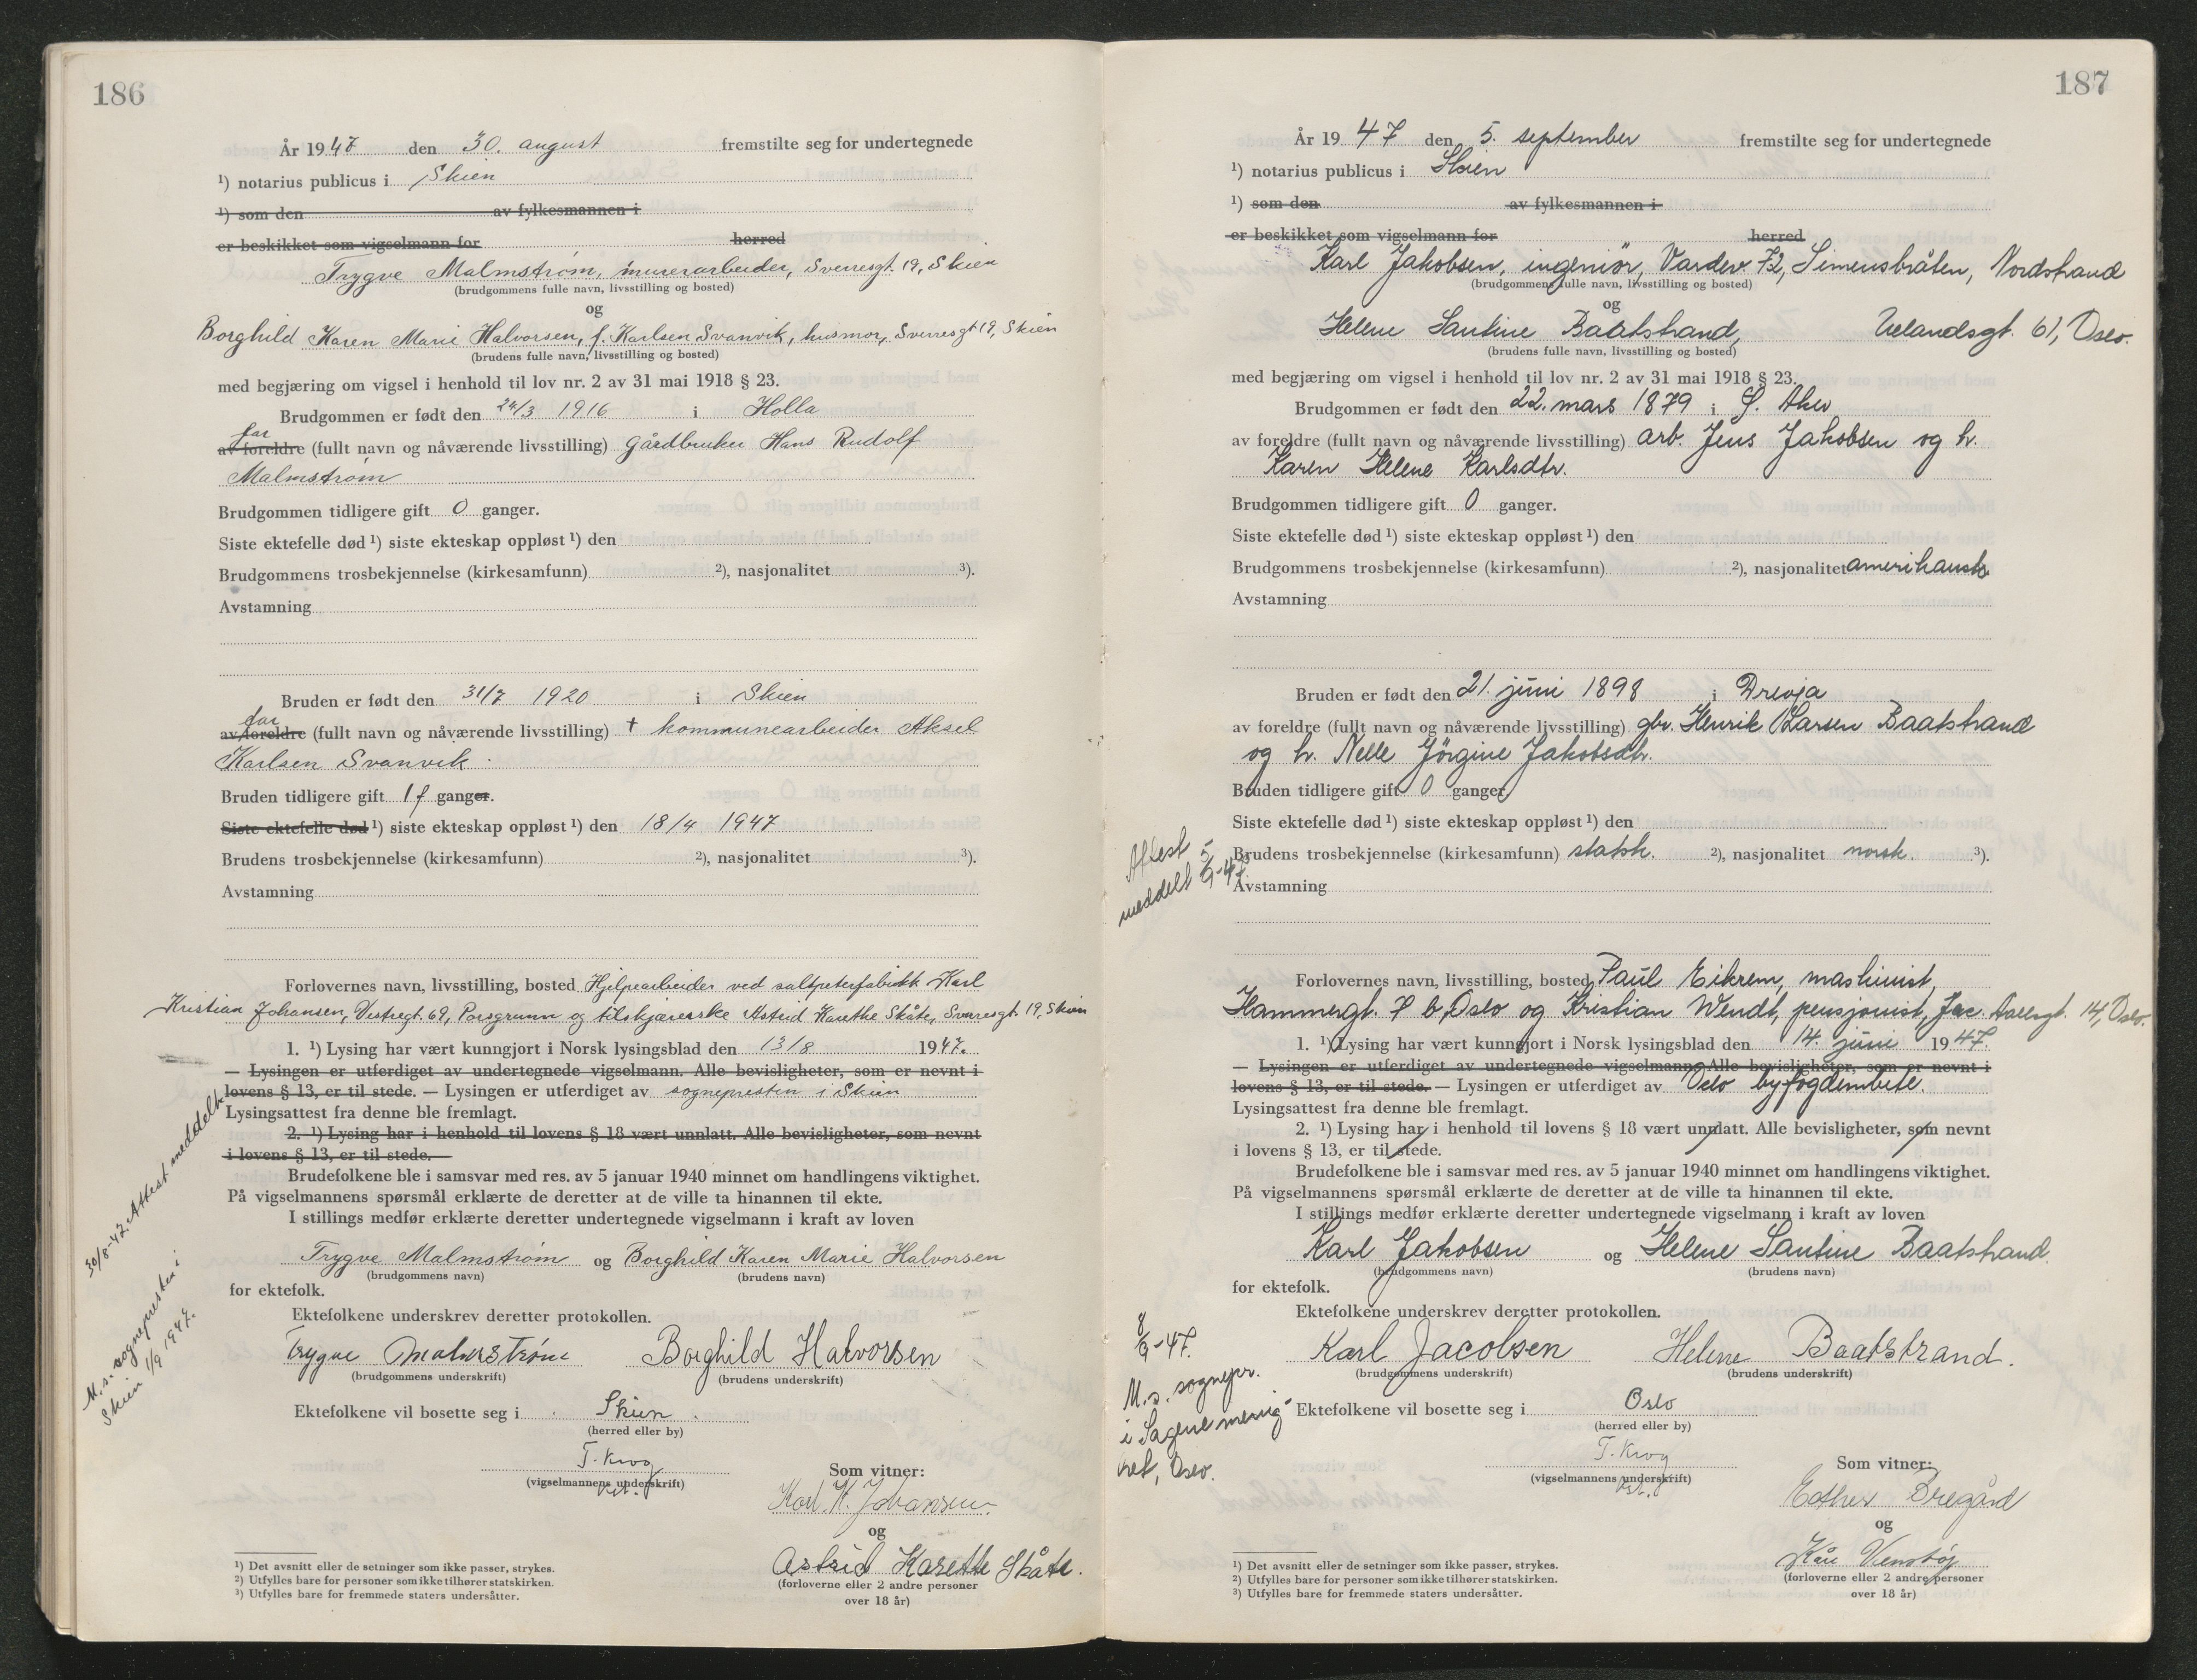 186
År 1947 den 30. august fremstilte seg for undertegnede
¹) notarius publicus i Skien
¹) som den av fylkesmannen i
er beskikket som vigselmann for herred
Trygve Malmstrøm, murerarbeider, Sverresgt. 19, Skien
(brudgommens fulle navn, livsstilling og bosted)
og
Borghild Karen Marie Halvorsen, f. Karlsen Svanvik, husmor, Sverresgt 19, Skien
(brudens fulle navn, livsstilling og bosted)
med begjæring om vigsel i henhold til lov nr. 2 av 31 mai 1918 § 23.
Brudgommen er født den 24/3 1916 i Holla
far
av foreldre (fullt navn og nåværende livsstilling) gårdbruker Hans Rudolf
Malmstrøm
Brudgommen tidligere gift 0 ganger.
Siste ektefelle død ¹) siste ekteskap oppløst ¹) den
Brudgommens trosbekjennelse (kirkesamfunn) ²), nasjonalitet ³).
Avstamning
Bruden er født den 31/7 1920 i Skien
far
av foreldre (fullt navn og nåværende livsstilling) † kommunearbeider Aksel
Karlsen Svanvik.
Bruden tidligere gift 1 f ganger.
Siste ektefelle død ¹) siste ekteskap oppløst ¹) den 18/4 1947
Brudens trosbekjennelse (kirkesamfunn) ²), nasjonalitet ³).
Avstamning
Forlovernes navn, livsstilling, bosted Hjelpearbeider ved salpeterfabrikk Karl
Kristian Johansen, Vestregt. 69, Porsgrunn og tilskjærerske Astrid Karethe Skåte, Sverresgt. 19, Skien
1. ¹) Lysing har vært kunngjort i Norsk lysingsblad den 13/8 1947.
— Lysingen er utferdiget av undertegnede vigselmann. Alle bevisligheter, som er nevnt i
lovens § 13, er til stede. — Lysingen er utferdiget av sognepresten i Skien
Lysingsattest fra denne ble fremlagt.
2. ¹) Lysing har i henhold til lovens § 18 vært unnlatt. Alle bevisligheter, som nevnt
i lovens § 13, er til stede. —
Brudefolkene ble i samsvar med res. av 5 januar 1940 minnet om handlingens viktighet.
På vigselmannens spørsmål erklærte de deretter at de ville ta hinannen til ekte.
I stillings medfør erklærte deretter undertegnede vigselmann i kraft av loven
Trygve Malmstrøm og Borghild Karen Marie Halvorsen
(brudgommens navn) (brudens navn)
for ektefolk.
Ektefolkene underskrev deretter protokollen.
Trygve Malmstrøm Borghild Halvorsen
(brudgommens underskrift) (brudens underskrift)
Ektefolkene vil bosette seg i Skien.
(herred eller by)
T. Krog
(vigselmannens underskrift)
Som vitner:
Karl. K. Johansen.
og
Astrid Karethe Skåte.
(forloverne eller 2 andre personer
over 18 år)
¹) Det avsnitt eller de setninger som ikke passer, strykes.
²) Utfylles bare for personer som ikke tilhører statskirken.
³) Utfylles bare for fremmede staters undersåtter.
30/8-47. Attest meddelt
M.s. sognepresten i
Skien 1/9 1947.
187
År 1947 den 5. september fremstilte seg for undertegnede
¹) notarius publicus i Skien
¹) som den av fylkesmannen i
er beskikket som vigselmann for herred
Karl Jakobsen, ingeniör, Vardev. 72, Simensbråten, Nordstrand
(brudgommens fulle navn, livsstilling og bosted)
og
Helene Santine Baatstrand, Uelandsgt. 61, Oslo.
(brudens fulle navn, livsstilling og bosted)
med begjæring om vigsel i henhold til lov nr. 2 av 31 mai 1918 § 23.
Brudgommen er født den 22. mars 1879 i Ø. Aker
av foreldre (fullt navn og nåværende livsstilling) arb. Jens Jakobsen og h.
Karen Helene Karlsdtr.
Brudgommen tidligere gift 0 ganger.
Siste ektefelle død ¹) siste ekteskap oppløst ¹) den
Brudgommens trosbekjennelse (kirkesamfunn) ²), nasjonalitet amerikansk
Avstamning
Bruden er født den 21. juni 1898 i Drevja
av foreldre (fullt navn og nåværende livsstilling) gbr. Henrik Larsen Baatstrand
og h. Nelle Jörgine Jakobsdtr.
Bruden tidligere gift 0 ganger.
Siste ektefelle død ¹) siste ekteskap oppløst ¹) den
Brudens trosbekjennelse (kirkesamfunn) statsk. ²), nasjonalitet norsk. ³).
Avstamning
Attest
meddelt 5/9-47.
Forlovernes navn, livsstilling, bosted Paul Eikrem, maskinist,
Hammergt. 7 b, Oslo og Kristian Wendt, pensjonist, Jac. Aallsgt. 14, Oslo.
1. ¹) Lysing har vært kunngjort i Norsk lysingsblad den 14. juni 1947.
— Lysingen er utferdiget av undertegnede vigselmann. Alle bevisligheter, som er nevnt i
lovens § 13, er til stede. — Lysingen er utferdiget av Oslo byfogdembete.
Lysingsattest fra denne ble fremlagt.
2. ¹) Lysing har i henhold til lovens § 18 vært unnlatt. Alle bevisligheter, som nevnt
i lovens § 13, er til stede.
Brudefolkene ble i samsvar med res. av 5 januar 1940 minnet om handlingens viktighet.
På vigselmannens spørsmål erklærte de deretter at de ville ta hinannen til ekte.
I stillings medfør erklærte deretter undertegnede vigselmann i kraft av loven
Karl Jakobsen og Helene Santine Baatstrand.
(brudgommens navn) (brudens navn)
for ektefolk.
Ektefolkene underskrev deretter protokollen.
Karl Jacobsen Helene Baatstrand.
(brudgommens underskrift) (brudens underskrift)
Ektefolkene vil bosette seg i Oslo
(herred eller by)
T. Krog
(vigselmannens underskrift)
Som vitner:
Esther Dregård
og
Kåre Venstöp
(forloverne eller 2 andre personer
over 18 år)
8/9-47.
M.s. sognepr.
i Sagene menig-
het, Oslo.
¹) Det avsnitt eller de setninger som ikke passer, strykes.
²) Utfylles bare for personer som ikke tilhører statskirken.
³) Utfylles bare for fremmede staters undersåtter.